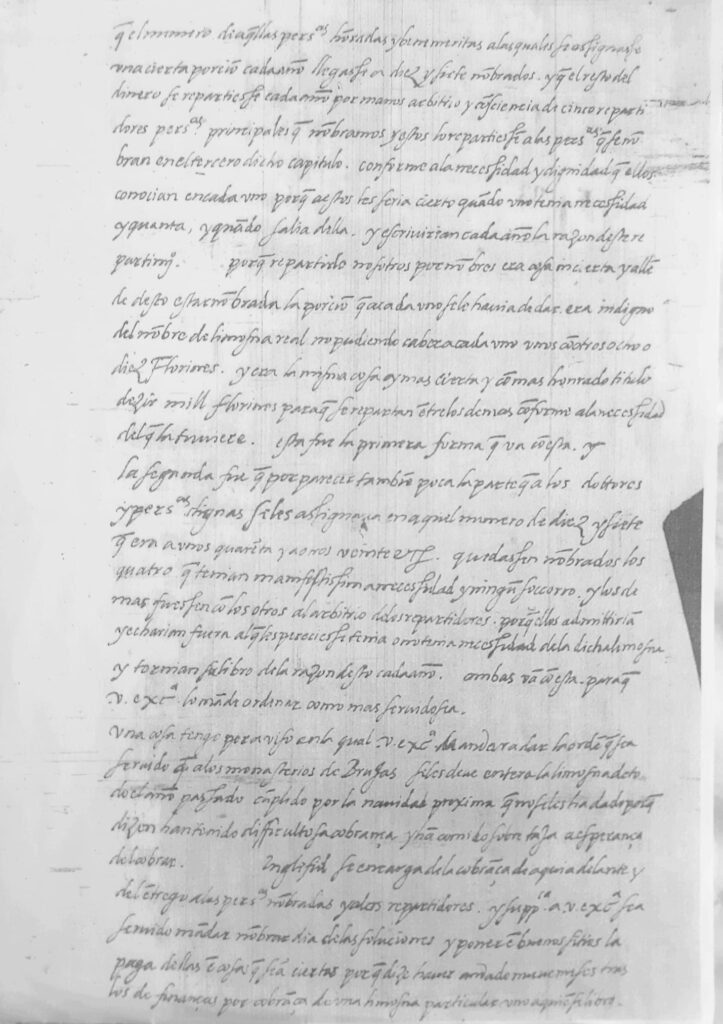 q̃ el numero di aq̃llas pers.ᵃˢ honradas y benemeritas a las quales se assignasse
una cierta porciõ cada año llegasse a diez y siete nõbrados. y q̃ el resto del
dinero se repartiesse cada año por manos arbitrio y cõsciencia de cinco reparti
dores pers.ᵃˢ principales q̃ nõbramos y estos lo repartiessẽ a las pers.ᵃˢ q̃ se nõ
bran en el tercero dicho capitulo. conforme a la necessidad y dignidad q̃ ellos
conocian en cada uno porq̃ a estos les seria cierto quãdo uno tenia necessidad
y quanta, y quãdo salia della. y escrivirian cada año la razon deste re
partimiẽ. porq̃ repartirlo nosotros por nõbres era cosa incierta y allẽ
de desto estar nõbrada la porciõ q̃ a cada uno se le havia de dar. era indigno
del nõbre de limosna real no pudiendo caber a cada uno unos quatro otros ocho o
diez Florines. y era la misma cosa y mas cierta y cõ mas honrado titulo
dezir mill florines para q̃ se repartan ẽtre los demas cõforme a la necessidad
del q̃ la tuviere. esta fue la primera forma q̃ va cõ esta. y
la segunda fue q̃ por parecer tambiẽ poca la parte q̃ a los dottores
y pers.ᵃˢ dignas se les assignava en aquel numero de diez y siete
q̃ era a unos quarẽta y a otros veinte quedassen nõbrados los
quatro q̃ tenian manifestissima necessidad y ningũ soccorro. y los de
mas fuessen cõ los otros al arbitrio de los repartidores. porq̃ ellos admittiriã
y echarian fuera al q̃ les pareciesse tenia o no tenia necessidad de la dicha limosna
y tornian su libro de la razon desto cada año. ambas vã cõ esta. para q̃
v. exc.ᵃ lo mãde ordinar como mas servido sea.
Una cosa tengo por aviso en la qual .v. exc.ᵃ mandera dar la ordẽ q̃ sea
servido q̃ a los monasterios de Brujas se les deve entera la limosna de to
do el año passado cũplido por la navidad proxima q̃ no se les ha dado porq̃
dizen han tenido difficultosa cobrança y hã comido sobre taza a esperança
de cobrar. Inglefid se encarga de la cobrãça de aqui adelante y
del ẽtrego a las pers.ᵃˢ nõbradas y a los repartidores. y supp.ᶜᵃ a v. exc.ᵃ sea
servido mãdar nõbrar dia de las soluciones y poner ẽ buenos sitios la
paga dellas ẽ cosa q̃ seã ciertas porq̃ dize haver andado nueve meses tras
los de finanças por cobrãça de una limosna particular